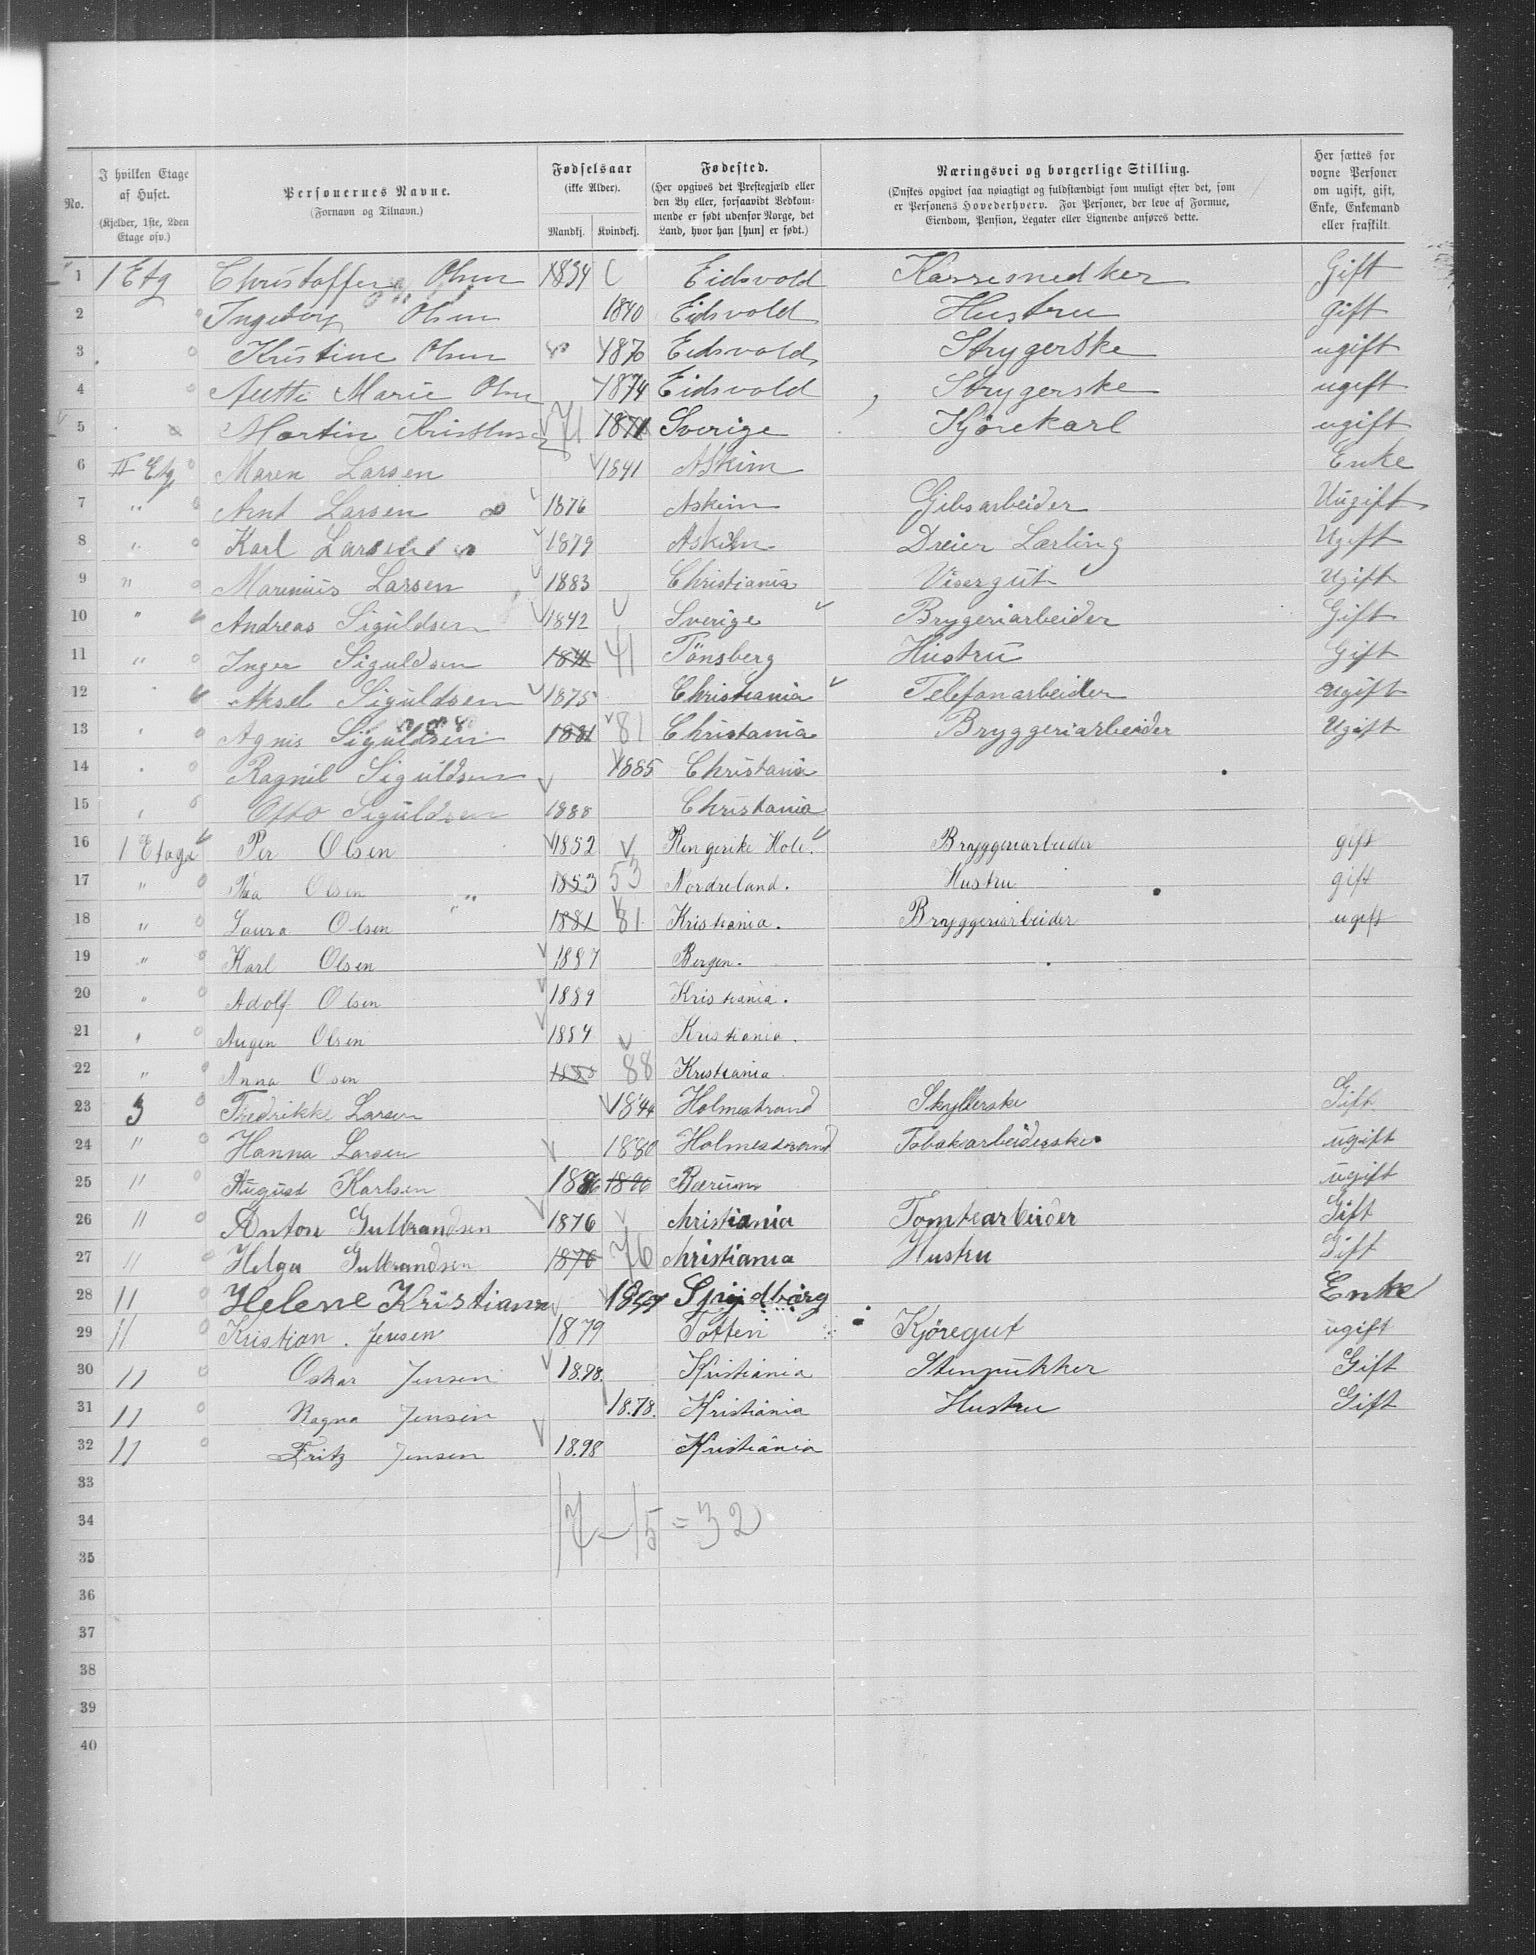 No. | I hvilken Etage af Huset. (Kjelder, 1ste, 2den Etage osv.) | Personernes Navne. (Fornavn og Tilnavn.) | Fødselsaar (ikke Alder). Mandkj. Kvindekj. | Fødested. (Her opgives det Prestegjæld eller den By eller, forsaavidt Vedkommende er født udenfor Norge, det Land, hvor han [hun] er født.) | Næringsvei og borgerlige Stilling. (Ønskes opgivet saa nøiagtigt og fuldstændigt som muligt efter det, som er Personens Hovederhverv. For Personer, der leve af Formue, Eiendom, Pension, Legater eller Lignende anføres dette. | Her sættes for voxne Personer om ugift, gift, Enke, Enkemand eller fraskilt.
1 1 Etg Christoffer Olsen 1834 Eidsvold Kassesnedker Gift
2 Ingeborg Olsen 1840 Eidsvold Hustru gift
3 Kristine Olsen 1870 Eidsvold Strygerske ugift
4 Marie Olsen 1874 Eidsvold Strygerske ugift
5 Martin 71 1871 Sverige Kjørekarl ugift
6 II Etg Maren Larsen 1841 Askim Enke
7 " Arnt Larsen 1876 Askim Gibsarbeider Uugift
8 " Karl Larsen 1879 Askim Dreier Lærling Ugift
9 " Marinius Larsen 1883 Christiania Visergut Ugift
10 " Andreas Siguldsen 1842 Sverige Brygeriarbeider Gift
11 " Inger Siguldsen 1841 41 Tönsberg Hustru Gift
12 " Aksel Siguldsen 1875 Christiania Telefonarbeider ugift
13 " Agnis Siguldsen 1881 81 Christania Bryggeriarbeider Ugift
14 " Ragnil Siguldsen 1885 Christania
15 " Otto Siguldsen 1888 Christania
16 1 Etage Per Olsen 1852 Ringerike Hole. Bryggeriarbeider gift
17 " Olsen 1853 53 Nordreland. Hustru gift
18 " Laura Olsen 1881 81 Kristiania. Bryggeriarbeider ugift
19 " Karl Olsen 1887 Bergen.
20 " Adolf Olsen 1889 Kristiania.
21 " Augen Olsen 1884 Kristiania.
22 " Anna Osen 1888 88 Kristiania
23 3 Fredrikke Larsen 1844 Holmestrand Skyllerske Gift
24 " Hanna Larsen 1880 Holmestrand Tobakarbeiderske ugift
25 " August Karlsen 1886 Bærum ugift
26 " Anton Gulbrandsen 1876 christiania Tomtearbeider Gift
27 " Helga Gulbrandsen 1876 76 christiania Hustru Gift
28 " Helene Kristians Enke
29 " Kristian. Jensen 1879 Totten Kjøregut ugift
30 " Oskar Jensen Kristiania Stenpukker Gift
31 " Ragna Jensen 18.78. Kristiania Hustru Gift
32 " Fritz Jensen 18.98 Kristiania
33
17 – 15 = 32
34
35
36
37
38
39
40